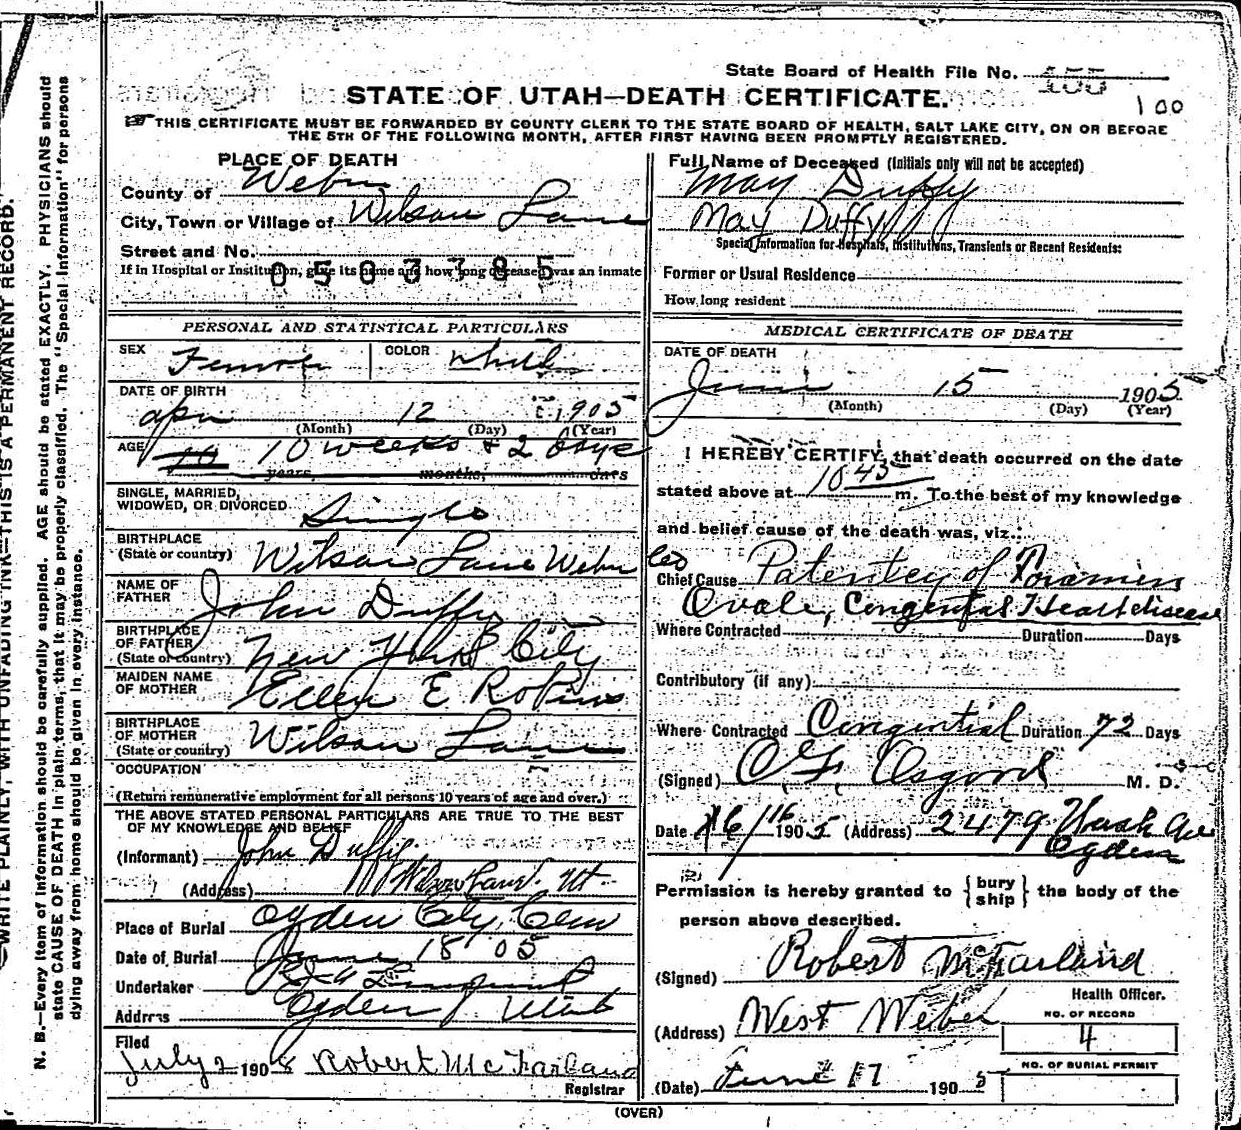 State Board of Health File No. 155
100
STATE OF UTAH—DEATH CERTIFICATE.
THIS CERTIFICATE MUST BE FORWARDED BY COUNTY CLERK TO THE STATE BOARD OF HEALTH, SALT LAKE CITY, ON OR BEFORE
THE 5TH OF THE FOLLOWING MONTH, AFTER FIRST HAVING BEEN PROMPTLY REGISTERED.
WRITE PLAINLY, WITH UNFADING INK—THIS IS A PERMANENT RECORD.
N. B.—Every item of information should be carefully supplied. AGE should be stated EXACTLY. PHYSICIANS should
state CAUSE OF DEATH in plain terms, that it may be properly classified. The "Special Information" for persons
dying away from home should be given in every instance.
PLACE OF DEATH
County of Weber
City, Town or Village of Wilson Lane
Street and No.
If in Hospital or Institution, give its name and how long deceased was an inmate
0503785
PERSONAL AND STATISTICAL PARTICULARS
SEX Female COLOR White
DATE OF BIRTH
Apr 12 1905
(Month) (Day) (Year)
AGE 10 10 weeks & 2 days
years, months, days
SINGLE, MARRIED,
WIDOWED, OR DIVORCED Single
BIRTHPLACE
(State or country) Wilson Lane Weber Co
NAME OF
FATHER John Duffy
BIRTHPLACE
OF FATHER
(State or country) New York City
MAIDEN NAME
OF MOTHER Ellen E. Robins
BIRTHPLACE
OF MOTHER
(State or country) Wilson Lane
OCCUPATION
(Return remunerative employment for all persons 10 years of age and over.)
THE ABOVE STATED PERSONAL PARTICULARS ARE TRUE TO THE BEST
OF MY KNOWLEDGE AND BELIEF
(Informant) John Duffy
(Address) Wilson Lane, Ut
Place of Burial Ogden City Cem
Date of Burial June 18 05
Undertaker
Address Ogden, Utah
Filed
July 2 1905 Robert McFarland
Registrar
Full Name of Deceased (Initials only will not be accepted)
May Duffy
May Duffy
Special Information for Hospitals, Institutions, Transients or Recent Residents:
Former or Usual Residence
How long resident
MEDICAL CERTIFICATE OF DEATH
DATE OF DEATH
June 15 1905
(Month) (Day) (Year)
I HEREBY CERTIFY, that death occurred on the date
stated above at 10 45 m. To the best of my knowledge
and belief cause of the death was, viz.:
Chief Cause Patentcy of Foramen
Ovale, Congenital Heart disease
Where Contracted Duration Days
Contributory (if any)
Where Contracted Congenital Duration 72 Days
(Signed) O. F. Osgood M. D.
Date 6/16 1905 (Address) 2479 Wash Ave
Ogden
Permission is hereby granted to {bury ship} the body of the
person above described.
(Signed) Robert McFarland
Health Officer.
(Address) West Weber
NO. OF RECORD
4
(Date) June 17 1905
NO. OF BURIAL PERMIT
(OVER)